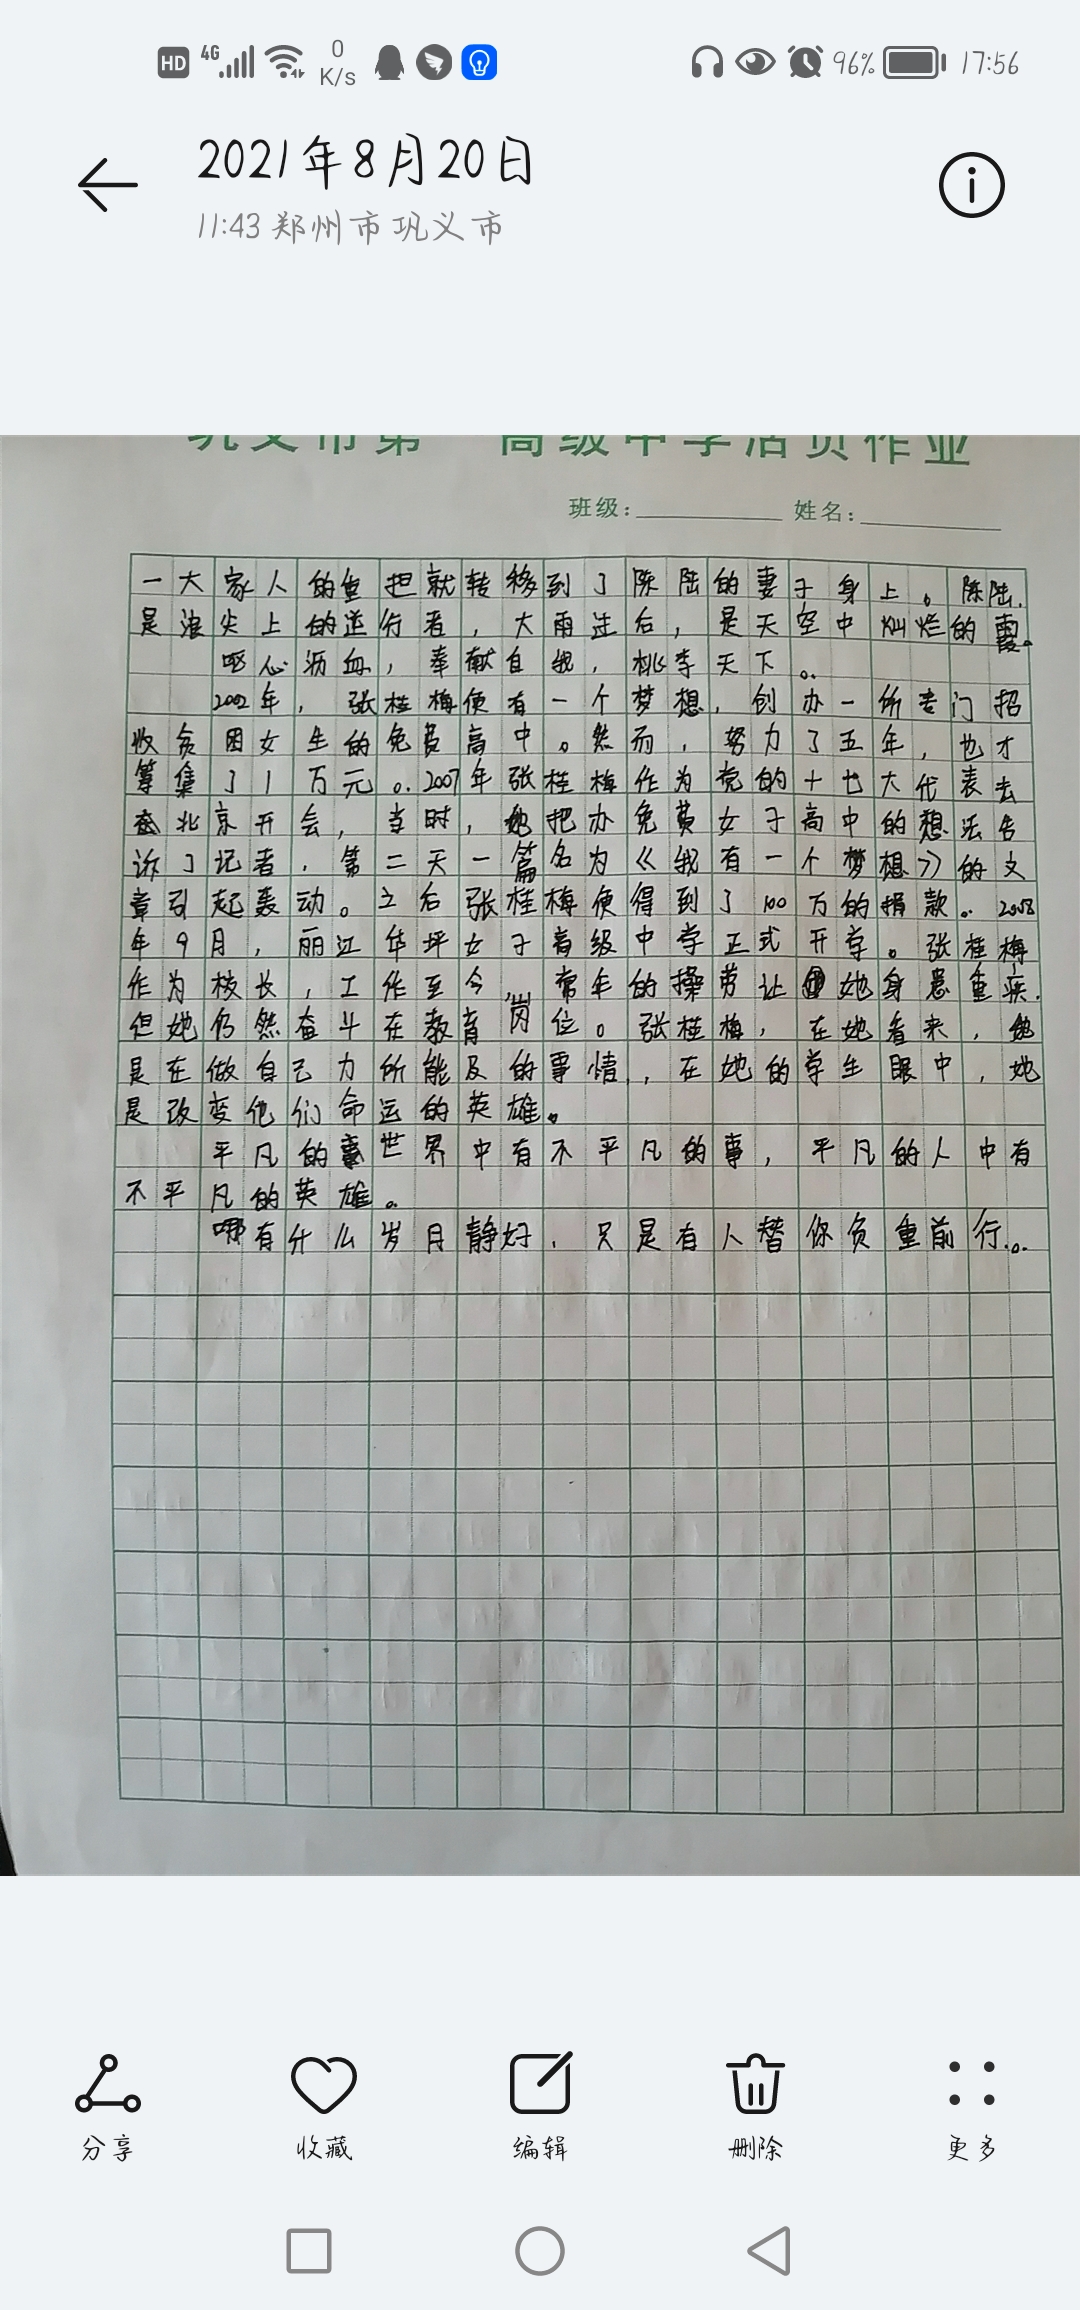 HD 4G 0 K/s 96% 17:56
2021年8月20日
11:43 郑州市 巩义市
巩义市第一高级中学活页作业
班级: 姓名:
一大家人的重担就转移到了陈陆的妻子身上。陈陆,
是浪尖上的逆行者，大雨过后，是天空中灿烂的霞。
呕心沥血，奉献自我，桃李天下。
2002年，张桂梅便有一个梦想，创办一所专门招
收贫困女生的免费高中。然而，努力了五年，也才
筹集了1万元。2007年张桂梅作为党的十七大代表去
北京开会，当时，她把办免费女子高中的想法告
诉了记者，第二天一篇名为《我有一个梦想》的文
章引起轰动。之后张桂梅便得到了100万的捐款。2008
年9月，丽江华坪女子高级中学正式开学。张桂梅
作为校长，工作至今，常年的操劳让她身患重疾.
但她仍然奋斗在教育岗位。张桂梅，在她看来，她
是在做自己力所能及的事情，在她的学生眼中，她
是改变他们命运的英雄。
平凡的世界中有不平凡的事，平凡的人中有
不平凡的英雄。
哪有什么岁月静好，只是有人替你负重前行。
分享 收藏 编辑 删除 更多